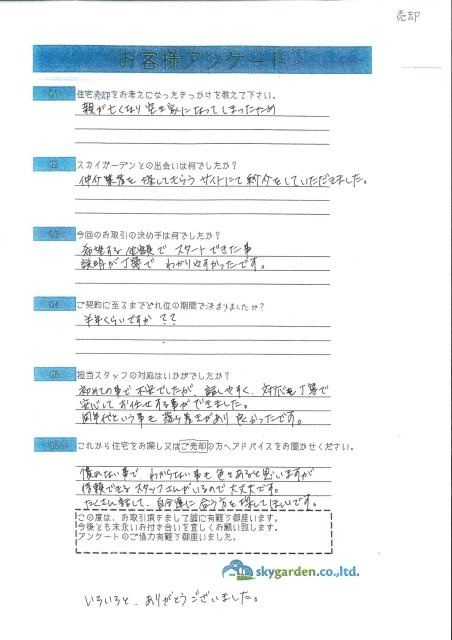 売却
お客様アンケート
Q1 住宅売却をお考えになったきっかけを教えて下さい。
親が亡くなり空き家になってしまったため
Q2 スカイガーデンとの出会いは何でしたか？
仲介業者を探してもらうサイトにて紹介をしていただきました。
Q3 今回のお取引の決め手は何でしたか？
希望する金額でスタートできた事
説明が丁寧でわかりやすかったです。
Q4 ご契約に至るまでどれ位の期間で決まりましたか？
半年くらいですか？？
Q5 担当スタッフの対応はいかがでしたか？
初めての事で不安でしたが 話しやすく、対応も丁寧で
安心してお任せする事ができました。
同年代という事も 落ち着きがあり 良かったです。
Q6 これから住宅をお探し又はご売却の方へアドバイスをお聞かせください。
慣れない事で わからない事も色々あると思いますが
信頼できるスタッフさんがいるので大丈夫です。
たくさん話して、自分達に合う方を探してほしいです。
この度は、お取引頂きまして誠に有難う御座います。
今後とも末永いお付き合いを宜しくお願い致します。
アンケートのご協力有難う御座いました。
skygarden.co.,ltd.
いろいろと、ありがとうございました。